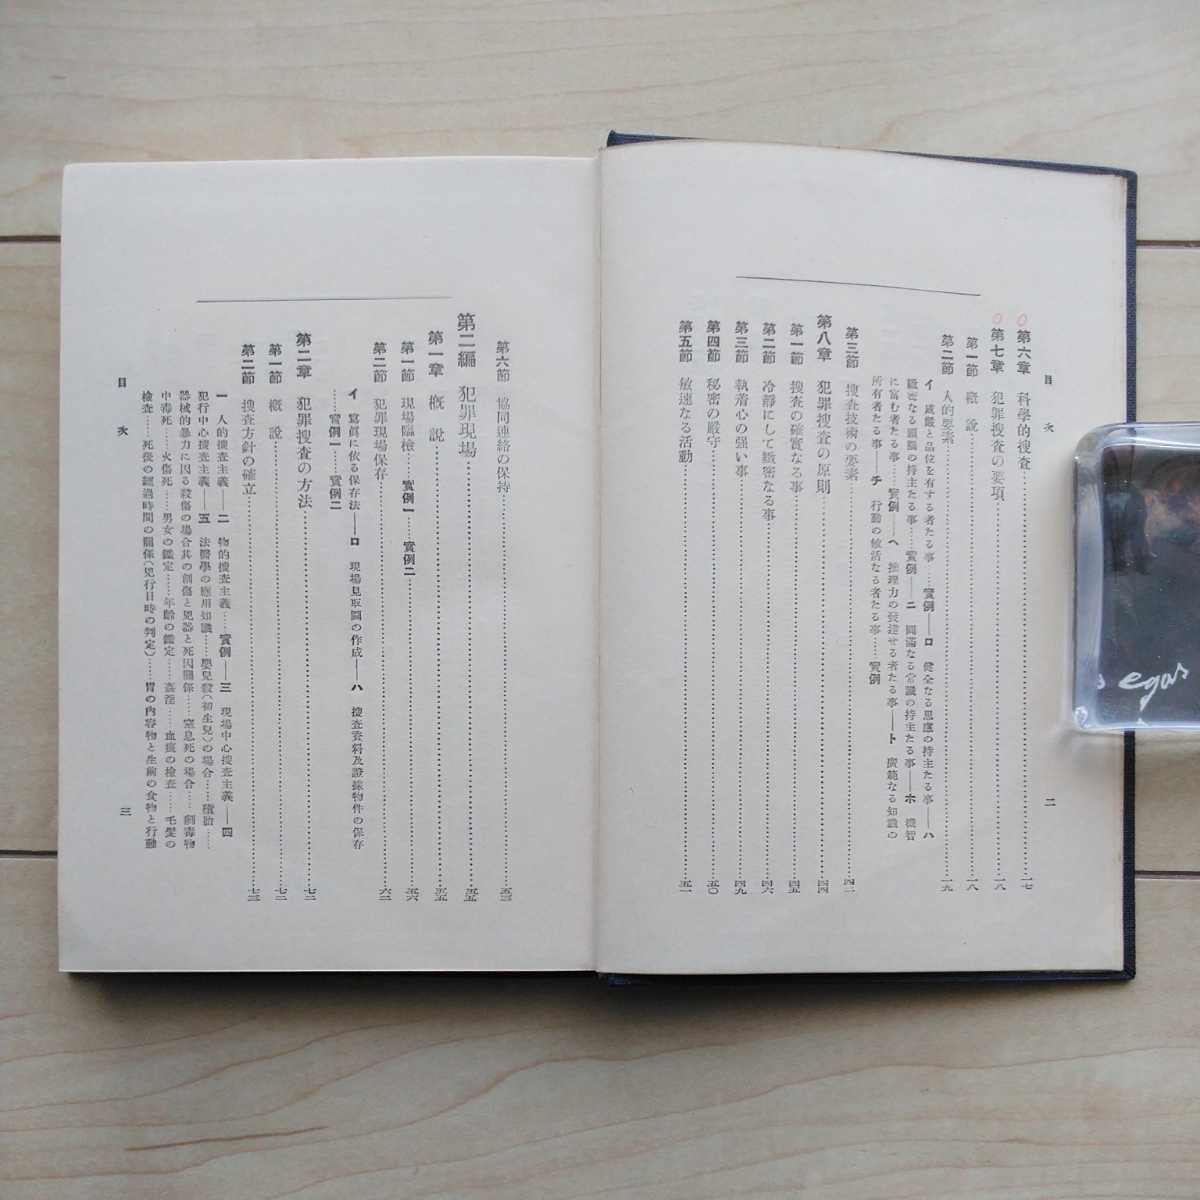 目次
二
第六章 科學的捜査……一七
第七章 犯罪捜査の要項……一八
第一節 概説……一八
第二節 人的要素……一九
イ 威嚴と品位を有する者たる事……實例――ロ 健全なる思慮の持主たる事――ハ
緻密なる頭腦の持主たる事……實例――ニ 圓滿なる常識の持主たる事――ホ 機智
に富む者たる事……實例――ヘ 推理力の發達せる者たる事――ト 廣範なる知識の
所有者たる事――チ 行動の敏活なる者たる事……實例
第三節 捜査技術の要素……四一
第八章 犯罪捜査の原則……四四
第一節 捜査の確實なる事……四五
第二節 冷靜にして緻密なる事……四六
第三節 執着心の强い事……四九
第四節 秘密の嚴守……五〇
第五節 敏速なる活動……五一
第六節 協同連絡の保持……五三
第二編 犯罪現場……五五
第一章 概説……五五
第一節 現場臨檢……實例一……實例二……五六
第二節 犯罪現場保存……六二
イ 寫眞に依る保存法――ロ 現場見取圖の作成――ハ 捜査資料及證據物件の保存
……實例一……實例二
第二章 犯罪捜査の方法……七二
第一節 概説……七二
第二節 捜査方針の確立……七三
一 人的捜査主義――二 物的捜査主義……實例――三 現場中心捜査主義――四
犯行中心捜査主義――五 法醫學の應用知識……嬰兒殺(初生兒)の場合……墮胎……
器械的暴力に因る殺傷の場合其の創傷と兇器と死因關係……窒息死の場合……劇毒物
中毒死……火傷死……男女の鑑定……年齡の鑑定……姦淫……血痕の檢査……毛髮の
檢査……死後の經過時間の關係(兇行日時の判定)……胃の內容物と生前の食物と行動
目次
三
egas